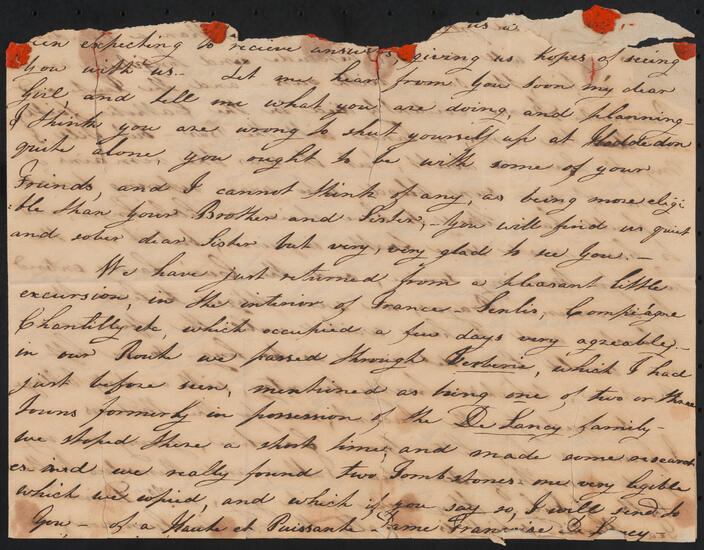 us a
been expecting to recieve answers, giving us hopes of seeing
You with us. - Let me hear from, You soon my dear
Girl, and tell me what you, are doing, and planning -
I think you are wrong to shut yourself up at Heddedon
quite alone, you ought to be with some of your
Friends, and I cannot think of any, as being more eligi
:ble than Your Brother and Sister, - You will find us quiet
and sober dear Sister but very, very glad to see You. -
We have just returned from a pleasant little
excursion, in the interior of France - Senlis, Compiègne
Chantilly etc, which occupied a few days very agreeably. -
in our Route we passed through Verberie, which I had
just before seen, mentioned as being one of two or three
towns formerly in possession of the De Lancy family -
we stoped there a short time, and made some research
es and we really found two Tombstones one very legible
which we copied, and which if you say so, I will send to
You, - of a Haute et Puissante Dame Francoise De Lancy